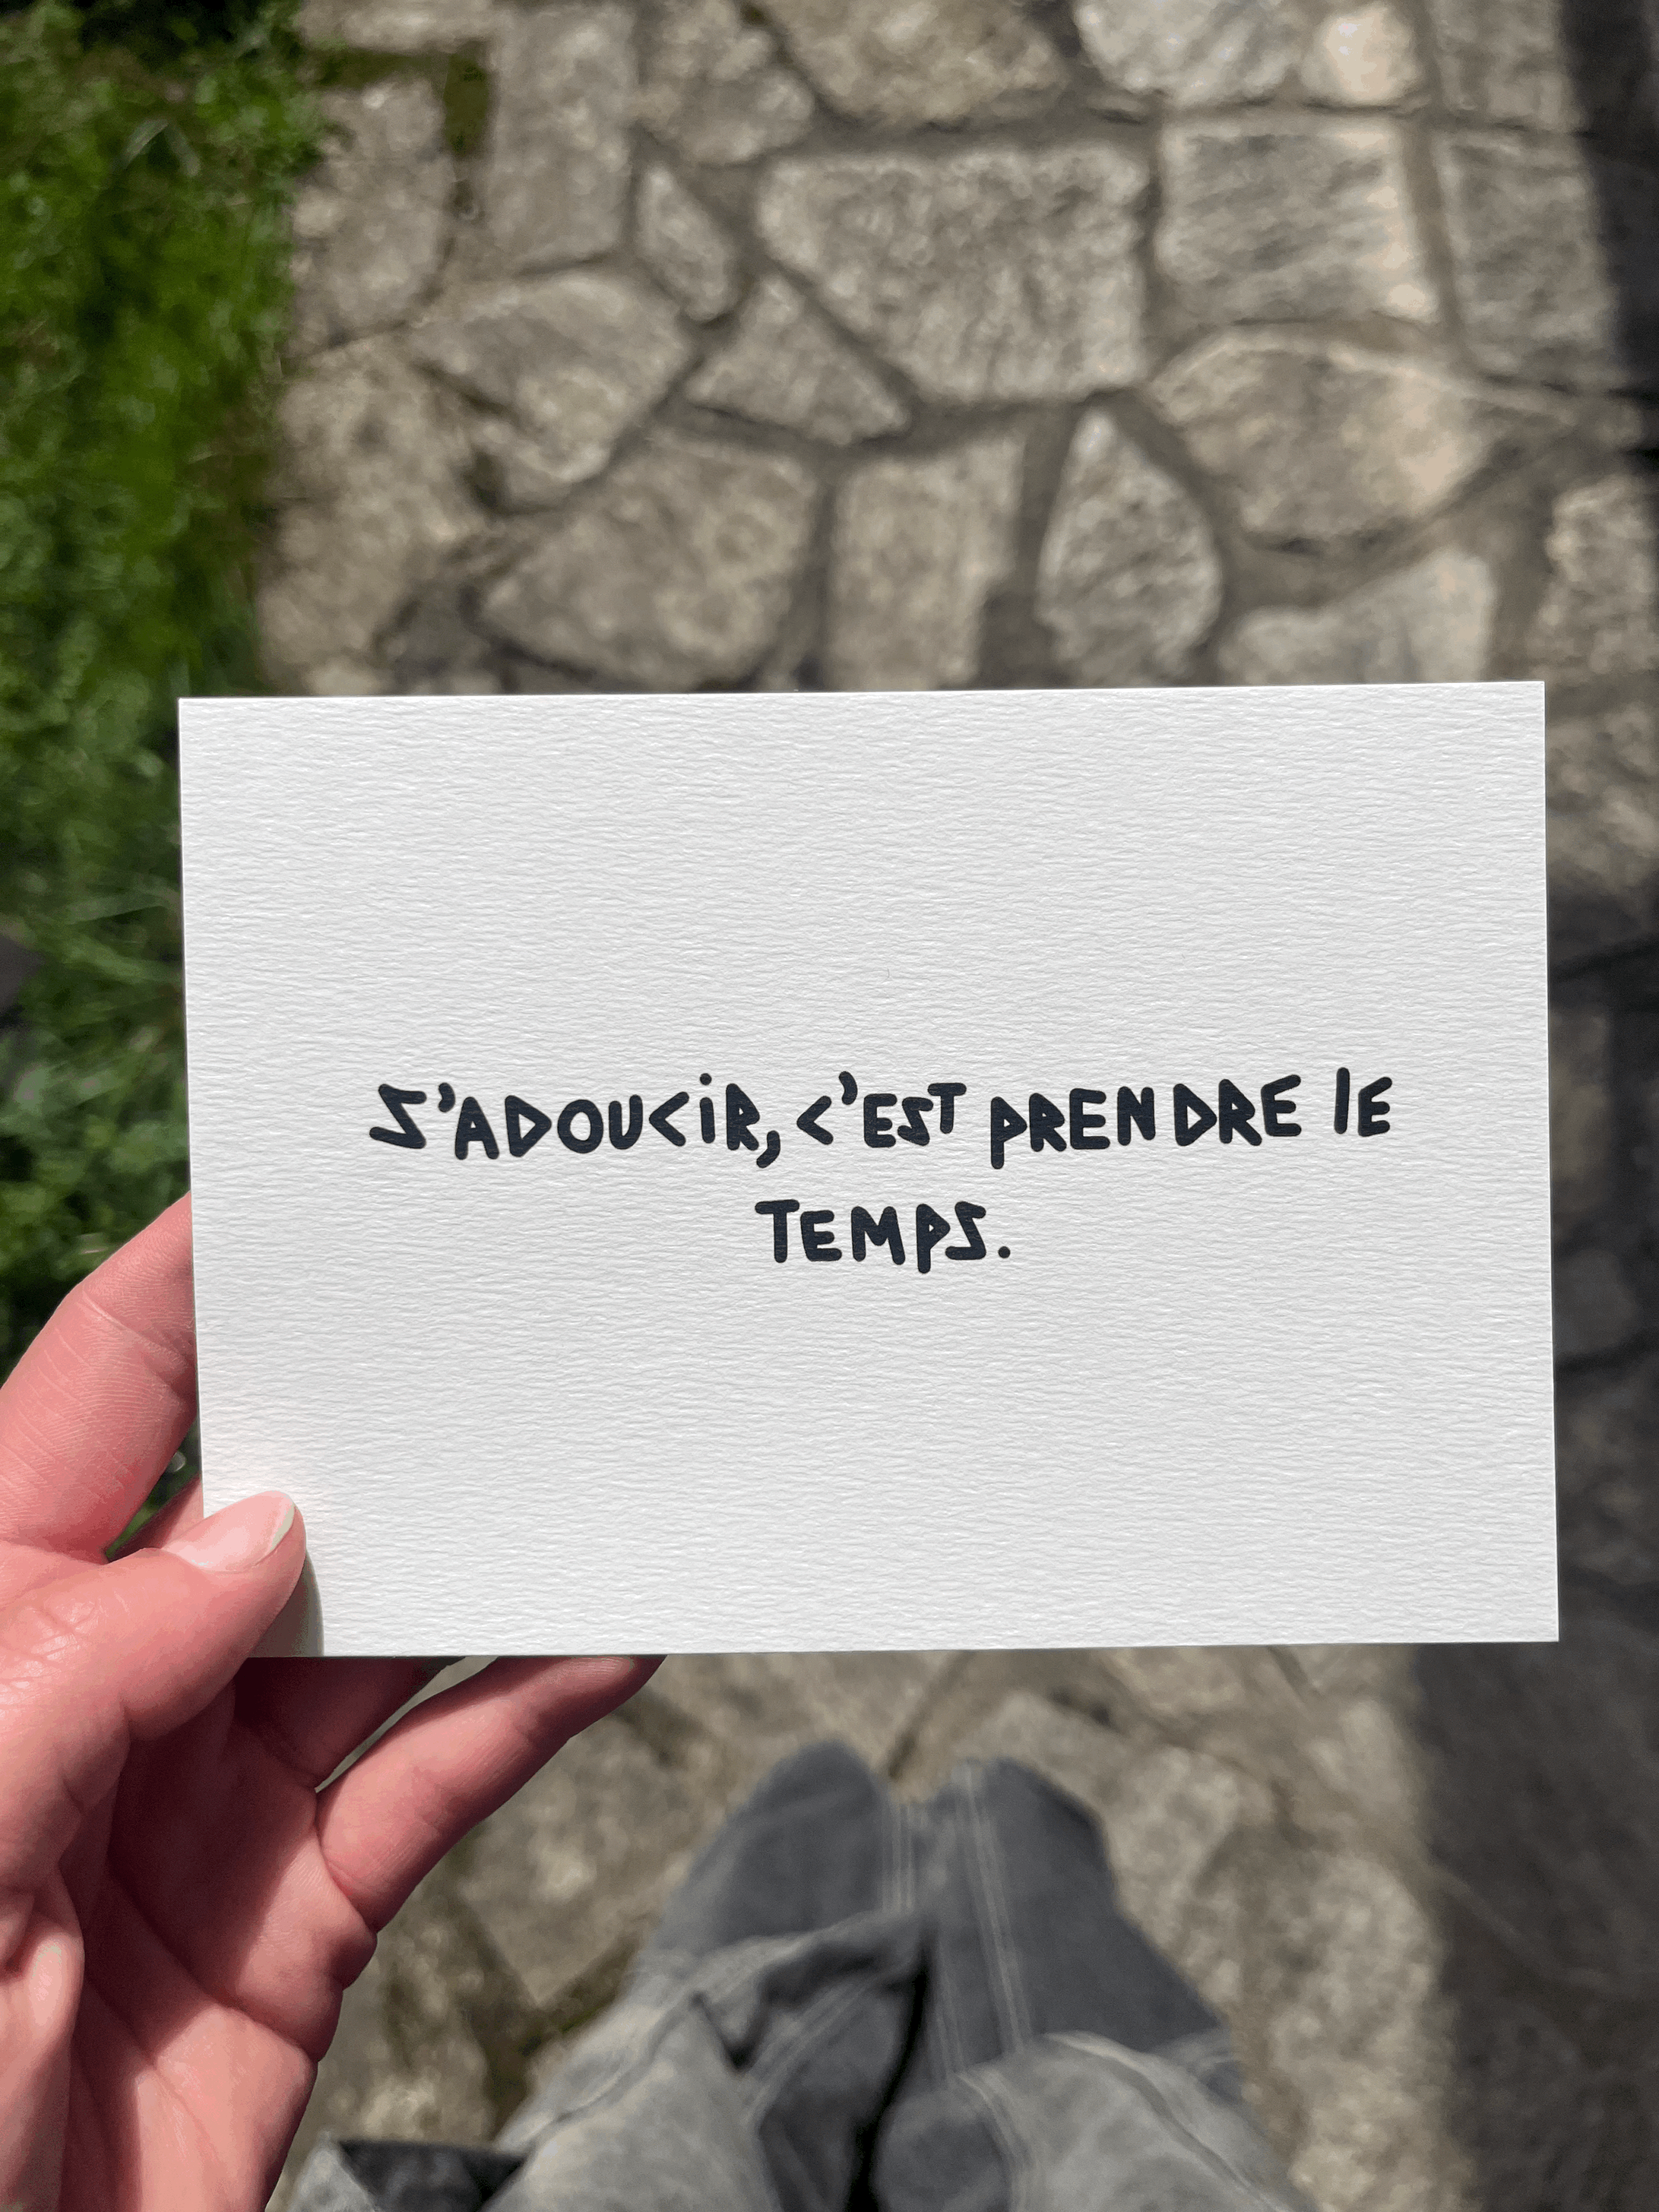 S'ADOUCiR, C'EST PRENDRE lE
TEMPS.